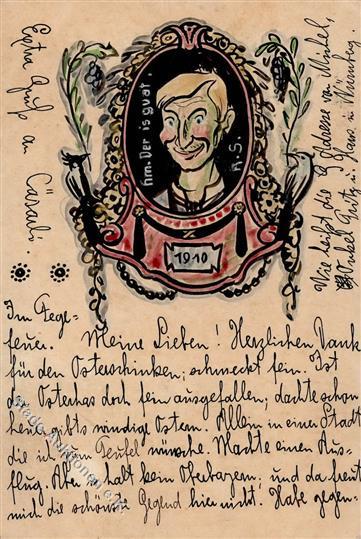 Extra Gruß an Cäsali.
hm. Der is guat.
A.S.
1910
Wie heißt die Adresse von Michel,
Onkel Gust. u. Hans in Nürnberg.
Im Fege-
feuer. Meine Lieben! Herzlichen Dank
für den Osterschinken, schmeckt fein. Ist
der Osterhas doch fein ausgefallen, dachte schon
heuer gibts windige Ostern. Allein in einer Stadt
die ich zum Teufel wünsche. Machte einen Aus-
flug. Aber is halt kein Oberbayern; und da freut
mich die schönste Gegend hier nicht. Habe gegen-